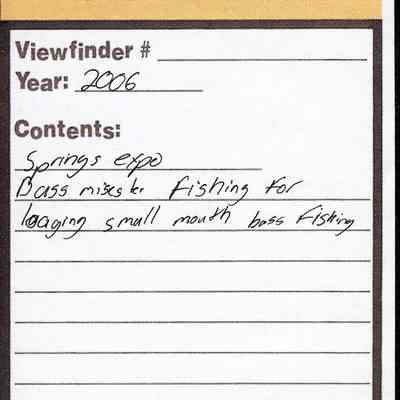 Viewfinder #
Year: 2006
Contents:
Springs expo
Bass fishing for
small mouth bass fishing